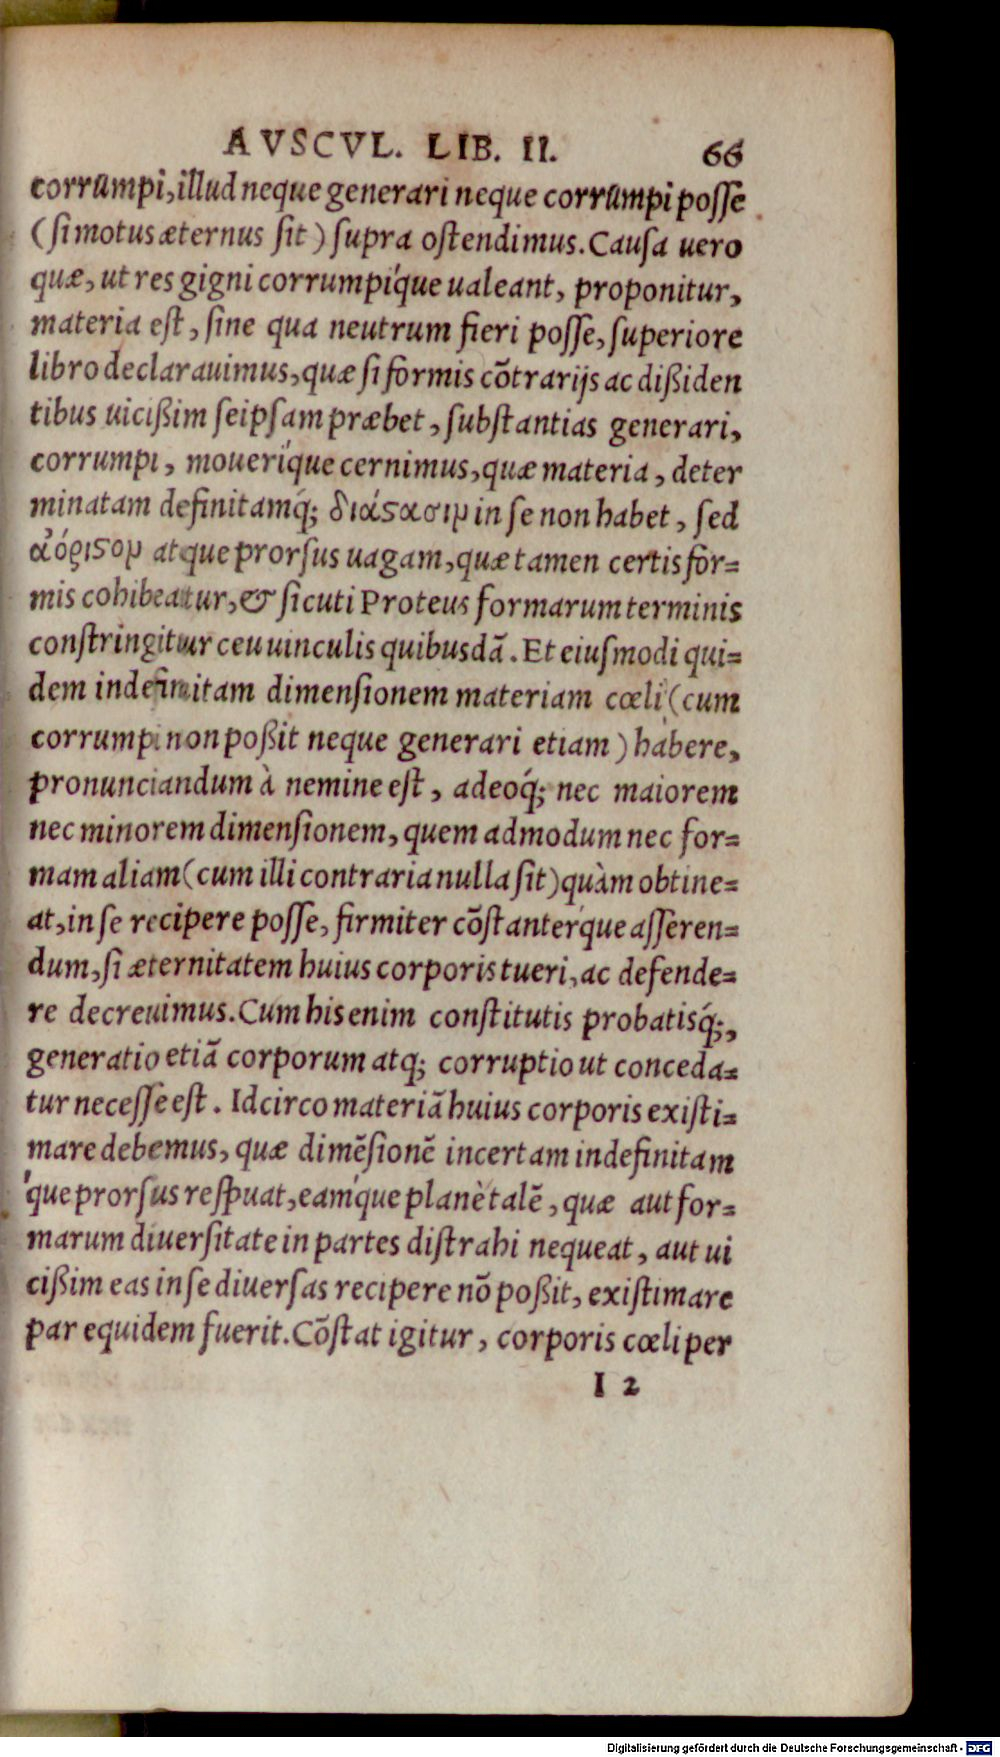 AVSCVL. LIB. II. 66
corrumpi, illud neque generari neque corrumpi posse
(si motus æternus sit) supra ostendimus. Causa uero
quæ, ut res gigni corrumpíque ualeant, proponitur,
materia est, sine qua neutrum fieri posse, superiore
libro declarauimus, quæ si formis cōtrarijs ac dißiden
tibus uicißim seipsam præbet, substantias generari,
corrumpi, moueríque cernimus, quæ materia, deter
minatam definitamq́; διάςασιμ in se non habet, sed
ἀόριςομ atque prorsus uagam, quæ tamen certis for=
mis cohibeatur, & sicuti Proteus formarum terminis
constringitur ceu uinculis quibusdā. Et eiusmodi qui=
dem indefinitam dimensionem materiam cœli (cum
corrumpi non poßit neque generari etiam) habere,
pronunciandum à nemine est, adeoq́; nec maiorem
nec minorem dimensionem, quem admodum nec for=
mam aliam (cum illi contraria nulla sit) quàm obtine=
at, in se recipere posse, firmiter cōstantérque asseren=
dum, si æternitatem huius corporis tueri, ac defende=
re decreuimus. Cum his enim constitutis probatisq́;,
generatio etiā corporum atq; corruptio ut conceda=
tur necesse est. Idcirco materiā huius corporis existi=
mare debemus, quæ dimēsionē incertam indefinitam
'que prorsus respuat, eamq́ue planè talē, quæ aut for=
marum diuersitate in partes distrahi nequeat, aut ui
cißim eas in se diuersas recipere nō poßit, existimare
par equidem fuerit. Cōstat igitur, corporis cœli per
I 2
Digitalisierung gefördert durch die Deutsche Forschungsgemeinschaft - DFG